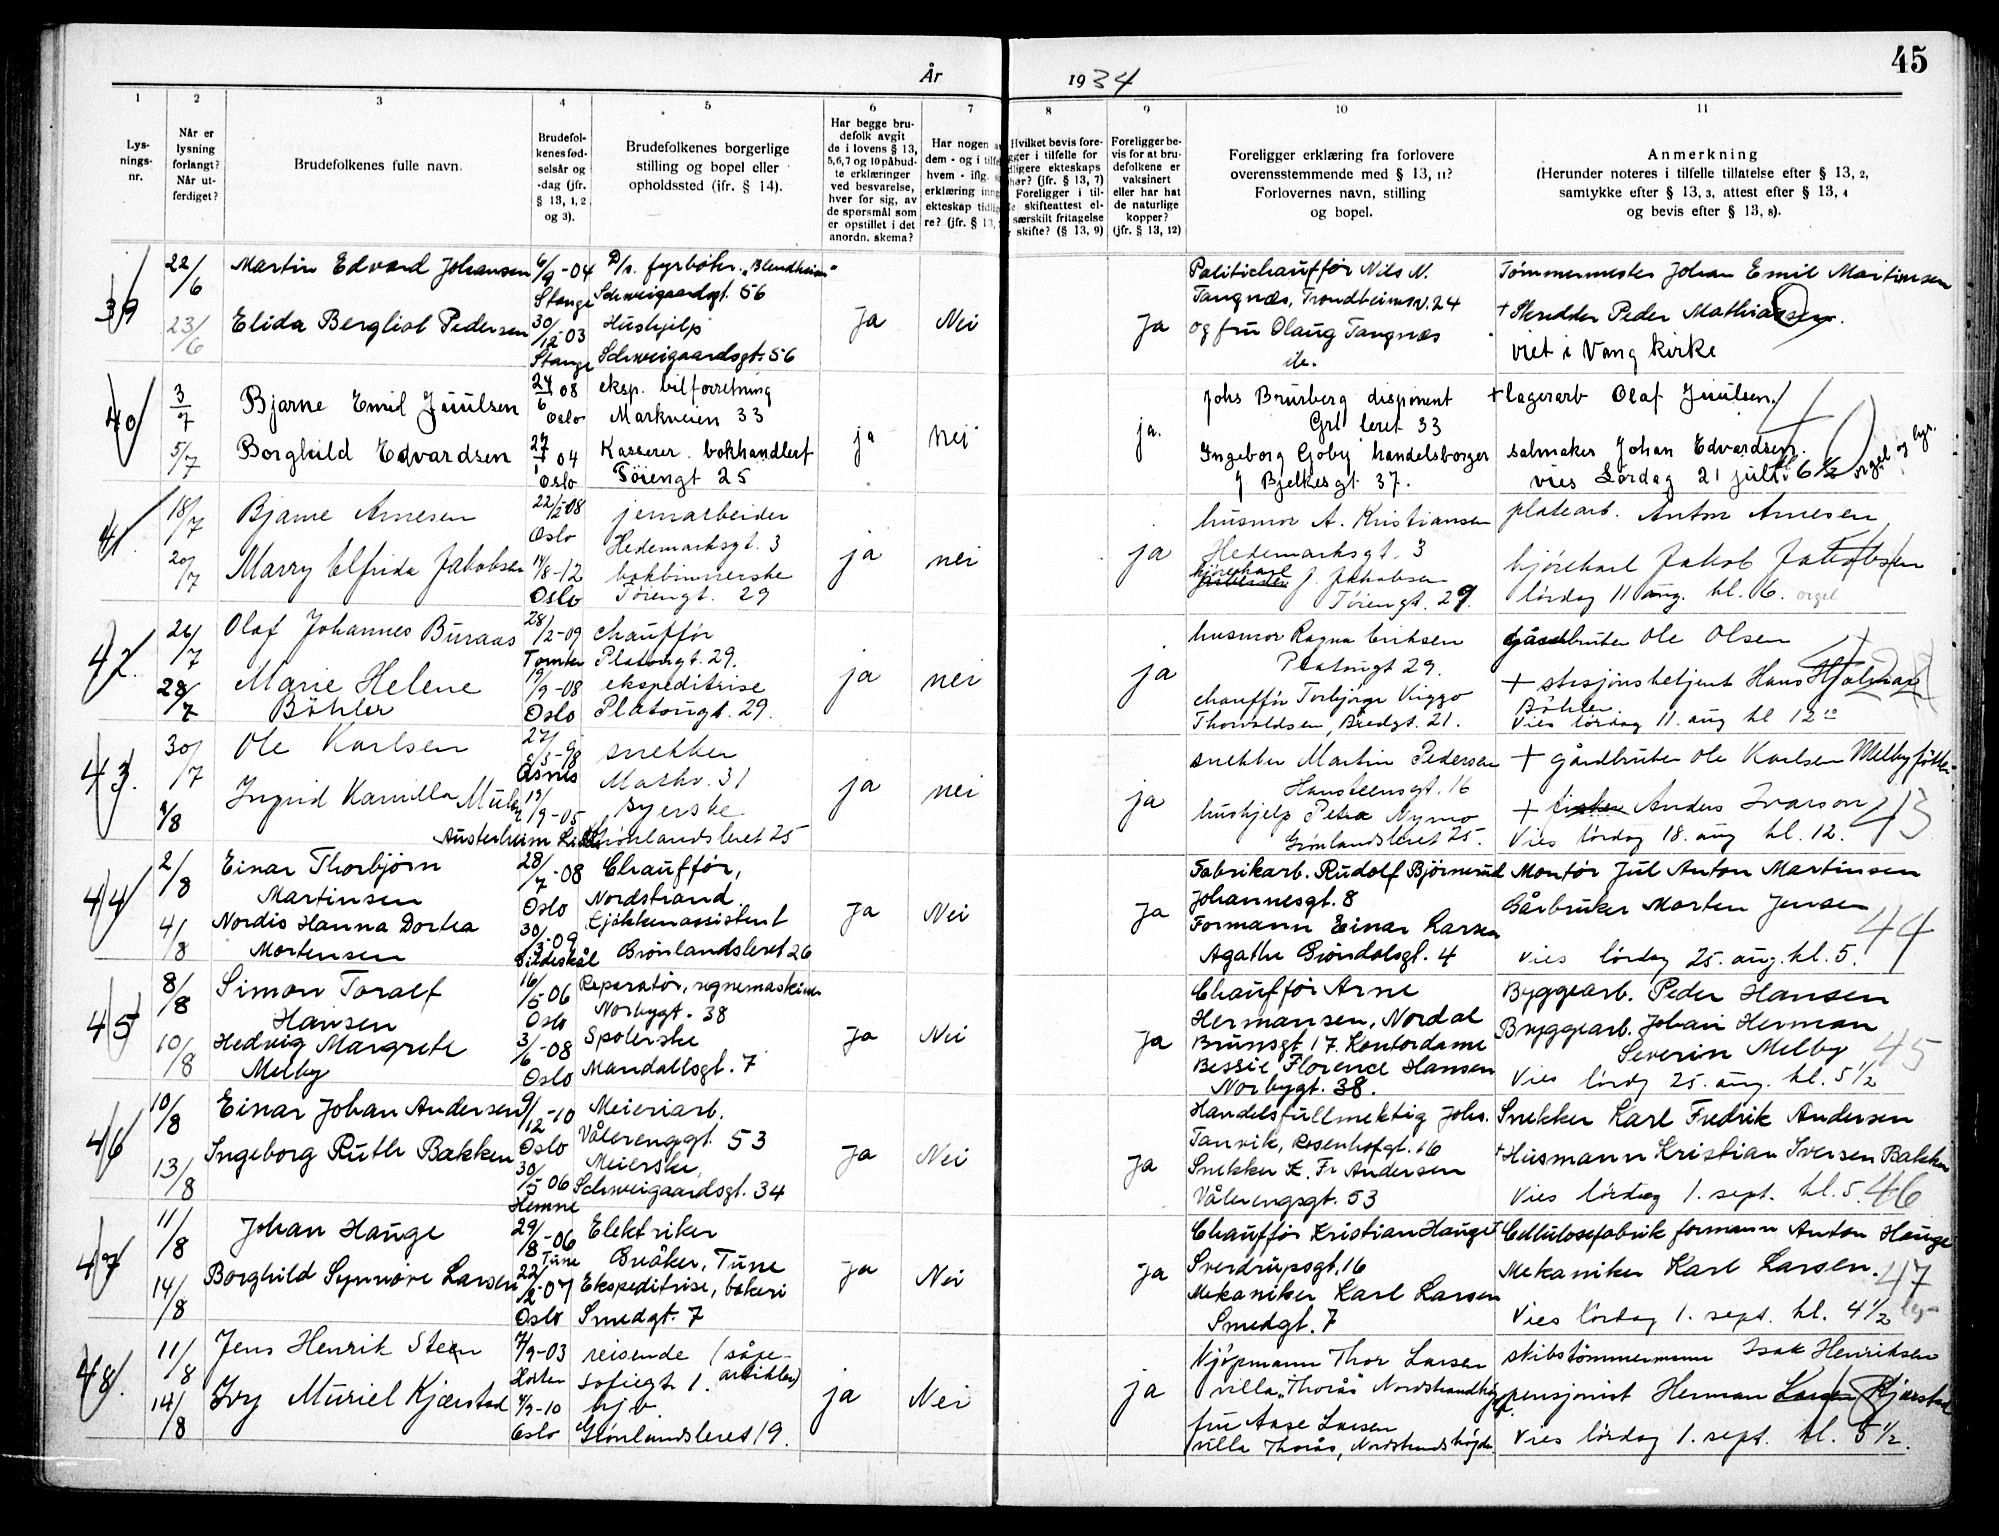 45
År 1934
1 2 3 4 5 6 7 8 9 10 11
Lysningsnr.
Når er lysning forlangt? Når utferdiget?
Brudefolkenes fulle navn.
Brudefolkenes fødselsår og -dag (jfr. § 13, 1, 2 og 3).
Brudefolkenes borgerlige stilling og bopel eller opholdssted (ifr. § 14).
Har begge brudefolk avgit de i lovens § 13, 5,6,7 og 10 påbudte erklæringer ved besvarelse, hver for sig, av de spørsmål som er opstillet i det anordn. skema?
Har nogen
dem - og i
hvem - iflg.
erklæring
ekteskap
re? (jfr. § 13,
Hvilket bevis fore-
i tilfelle for
ekteskaps
(jfr. § 13, 7)
Foreligger i til-
skifteattest el-
særskilt fritagelse
skifte? (§ 13, 9)
Foreligger bevis for at brudefolkene er vaksinert eller har hat de naturlige kopper? (jfr. § 13, 12)
Foreligger erklæring fra forlovere overensstemmende med § 13, 11? Forlovernes navn, stilling og bopel.
Anmerkning
(Herunder noteres i tilfelle tillatelse efter § 13, 2, samtykke efter § 13, 3, attest efter § 13, 4 og bevis efter § 13, 8).
39
22/6 Martin Edvard Johansen 6/9-04 D/s. fyrbøter. "Blendheim" Politichauffør Nils N. Tømmermester Johan Emil Martinsen
Stange Schweigaardsgt. 56 Tangnæs, Trondheimsv. 24
23/6 Elida Bergliot Pedersen 30/12-03 Hushjelp Ja Nei Ja og fru Olaug Tangnæs + Skredder Peder Mathiassen.
Stange Schweigaardsgt. 56 do. viet i Vang kirke
40
3/7 Bjarne Emil Juulsen 24/6 08 eksp. bilforretning Johs Brurberg disponent + lagerarb Olaf Juulsen.
Oslo Markveien 33 Grl leret 33
5/7 Borghild Edvardsen 27/1 04 Kasserer. bokhandlert ja nei ja. Ingeborg Gjøby handelsborger salmaker Johan Edvardsen.
Oslo Tøiengt 25 J Bjelkesgt 37. vies Lørdag 21 juli 6 1/2 orgel og lys.
41
18/7 Bjarne Arnesen 22/2-08 jernarbeider husmor A. Kristiansen platearb. Anton Arnesen
Oslo Hedemarksgt. 3 Hedemarksgt. 3
20/7 Marry Elfrida Jakobsen 14/8-12 bokbinnerske ja nei ja kjørekarl J. Jakobsen kjørekarl Jakob Jakobsen
Oslo Tøiengt. 29 Tøiengt. 29. lørdag 11 aug. kl. 6. orgel
42.
26/7 Olaf Johannes Buraas 28/2-09 chauffør husmor Ragna Eriksen gårdbruker Ole Olsen
Tomter Platougt. 29. Platougt 29.
28/7 Marie Helene 19/9-08 ekspeditrise ja nei ja chauffør Torbjørn Viggo + stasjonsbetjent Hans Hjalmar
Bøhler Oslo Platougt. 29. Thorvaldsen, Bredgt. 21. Bøhler.
Vies lørdag 11. aug kl 12
43.
30/7 Ole Karlsen snekker snekker Martin Pedersen + gårdbruker Ole Karlsen
Åsnes Markv. 31 Hansteensgt. 16
1/8 Ingrid Kamilla 13/9-05 syerske ja nei ja hushjelp Petra Nymo + fisker Anders Ivarson 43
Austerheim Grønlandsleret 25 Grønlandsleret 25. Vies lørdag 18. aug kl. 12.
44
2/8 Einar Thorbjørn 28/7-08 Chauffør, Fabrikarb. Rudolf Bjørnerud Montør Jul Anton Martinsen
Martinsen Oslo Nordstrand. Johannesgt. 8
4/8 Nordis Hanna Dortea 30/3-09 Kjøkkenassistent Ja Nei Ja Formann Einar Larsen Gårbruker Morten Jensen 44
Mortensen Gildeskål Grønlandsleret 26 Agathe Grøndalsgt. 4 Vies lørdag 25. aug. kl. 5.
45
8/8 Simon Toralf 16/5-06 Reparatør, regnemaskiner Chauffør Arne Byggearb. Peder Hansen
Hansen Oslo Norbygt. 38 Hermansen, Nordal
10/8 Hedvig Margrete 3/6-08 Spolerske Ja Nei Ja Brunsgt 17. Kontordame Bryggearb. Johan Herman
Melby Oslo Mandallsgt. 7 Bessie Florence Hansen Severin Melby 45
Norbygt. 38. Vies lørdg 25. aug. kl. 5 1/2
46
10/8 Einar Johan Andersen 9/12-10 Meieriarb. Handelsfullmektig Johs. Snekker Karl Fredrik Andersen
Oslo Vålerenggt. 53 Tanvik, Rosenhofgt. 16
13/8 Ingeborg Ruth Bakken 30/5 06 Meierske, Ja Nei Ja Snekker K. Fr Andersen + Husmann Kristian Iversen Bakken
Hemne Schweigaardsgt. 34 Vålerengsgt. 53 Vies lørdag 1. sept. kl. 5. 46
47
11/8 Johan Hauge 29/8-06 Elektriker Chauffør Kristian Hauge Cellulosefabrik formann Anton Hauge
Tune Greåker, Tune Sverdrupsgt. 16
14/8 Borghild Synnøve Larsen 22/2-07 Ekspeditrise, bakeri Ja Nei Ja Mekaniker Karl Larsen Mekaniker Karl Larsen. 47
Oslo Smedgt. 7 Smedgt. 7 Vies lørdag 1. sept. kl. 4 1/2 lys
48.
11/8 Jens Henrik Steen 7/9-03 reisende (såpe- Kjøpmann Thor Larsen skibstømmermann Isak Henriksen
Horten Sofiegt 1. artikler) villa "Thorås" Nordstrandhøg
14/8 Ivy Muriel Kjærstad 4/9-10 hjv. ja Nei ja fru Aase Larsen pensjonist Herman Larsen Kjærstad
Oslo Grønlandsleret 19. villa Thorås, Nordstrandshøgda. Vies lørdag 1. sept. kl. 5 1/2.